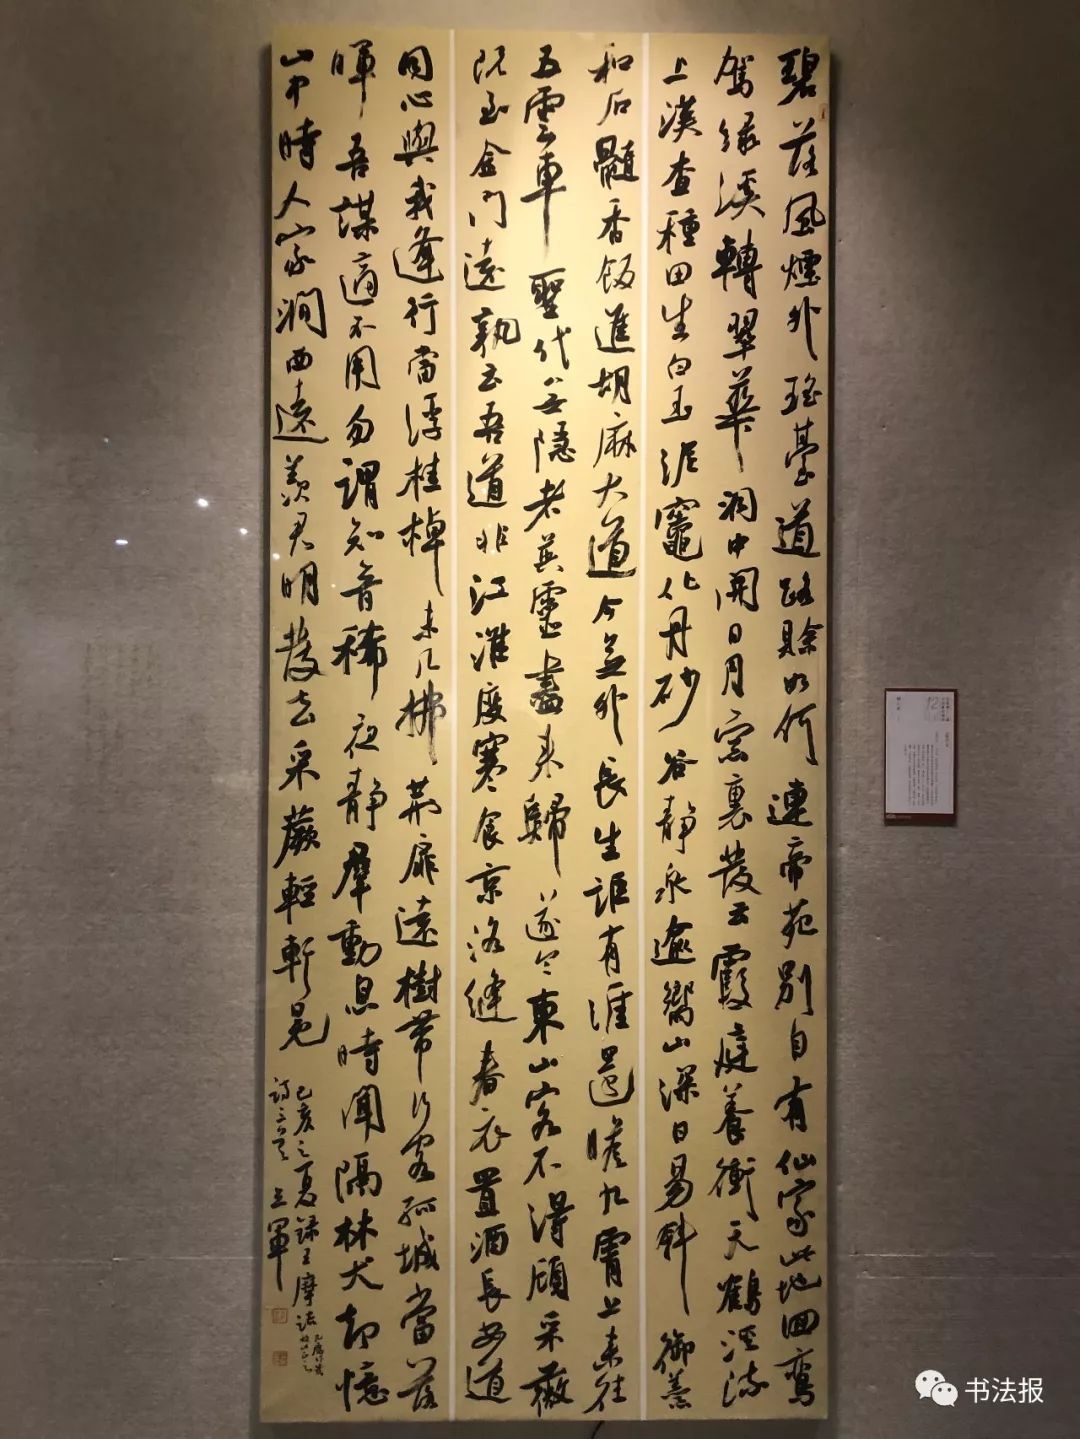 碧落風煙外瑤臺道路賒如何連帝苑別自有仙家此地回鸞
駕緣溪轉翠華洞中開日月窓裏發云霞庭養衝天鶴溪流
上漢查種田生白玉泥竈化丹砂谷靜泉逾響山深日易斜御羹
和石髓香飯進胡麻大道今無外長生詎有涯還瞻九霄上來往
五雲車聖代無隱者英靈盡來歸遂令東山客不得顧采薇
既至金門遠孰云吾道非江淮度寒食京洛縫春衣置酒長安道
同心與我違行當浮桂棹未幾拂荊扉遠樹帶行客孤城當落
暉吾謀適不用勿謂知音稀夜靜羣動息時聞隔林犬却憶
山中時人家澗西遠羨君明發去采蕨輕軒冕
己亥之夏錄王摩詰
詩三首 立軍
12
书法报